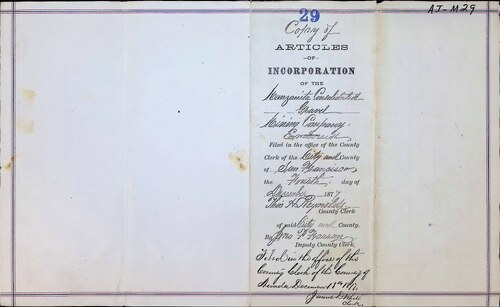 29
AI-M29
Copy of
ARTICLES
-OF-
INCORPORATION
OF THE
Manzanita Consolidated
Gravel
Mining Company
Filed in the office of the County
Clerk of the City and County
of San Francisco
the Fourth day of
December 1877
Thos H. Reynolds
County Clerk
of said City and County.
By Jno
Deputy County Clerk.
Filed in the office of the
County Clerk of the County of
Nevada December 13th 187
James D. White
Clerk